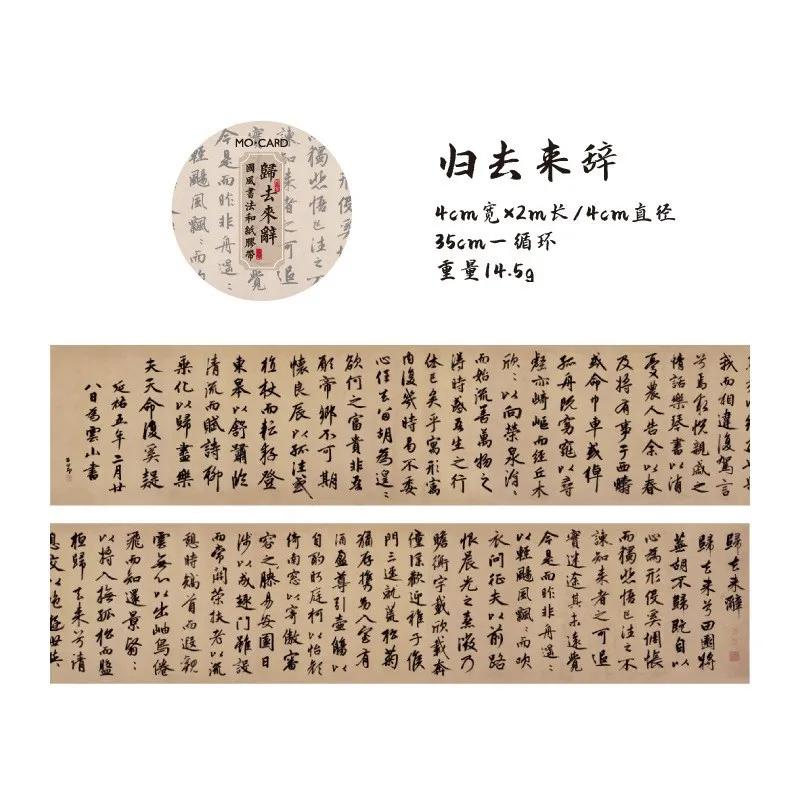 MO·CARD
歸去來辭
國風書法和紙膠帶
归去来辞
4cm宽×2m长/4cm直径
35cm一循环
重量14.5g
我而相違復駕言
兮焉求悦親戚之
情話樂琴書以消
憂農人告余以春
及將有事于西疇
或命巾車或棹
孤舟既窈窕以尋
壑亦崎嶇而經丘木
欣〻以向榮泉涓〻
而始流善萬物之
得時感吾生之行
休已矣乎寓形宇
內復幾時曷不委
心任去留胡為遑〻
欲何之富貴非吾
願帝鄉不可期
懷良辰以孤往或
植杖而耘耔登
東皋以舒嘯臨
清流而賦詩聊
乘化以歸盡樂
夫天命復奚疑
延祐五年二月廿
八日為雲山書
歸去來辭
歸去來兮田園將
蕪胡不歸既自以
心為形役奚惆悵
而獨悲悟已往之不
諫知來者之可追
實迷途其未遠覺
今是而昨非舟遙〻
以輕颺風飄〻而吹
衣問征夫以前路
恨晨光之熹微乃
瞻衡宇載欣載奔
僮僕歡迎稚子候
門三逕就荒松菊
猶存携幼入室有
酒盈尊引壺觴以
自酌眄庭柯以怡顏
倚南窓以寄傲審
容之膝易安園日
涉以成趣門雖設
而常關策扶老以流
憩時矯首而遐觀
雲無心以出岫鳥倦
飛而知還景翳〻
以將入撫孤松而盤
桓歸去來兮請
息交以絶遊世與